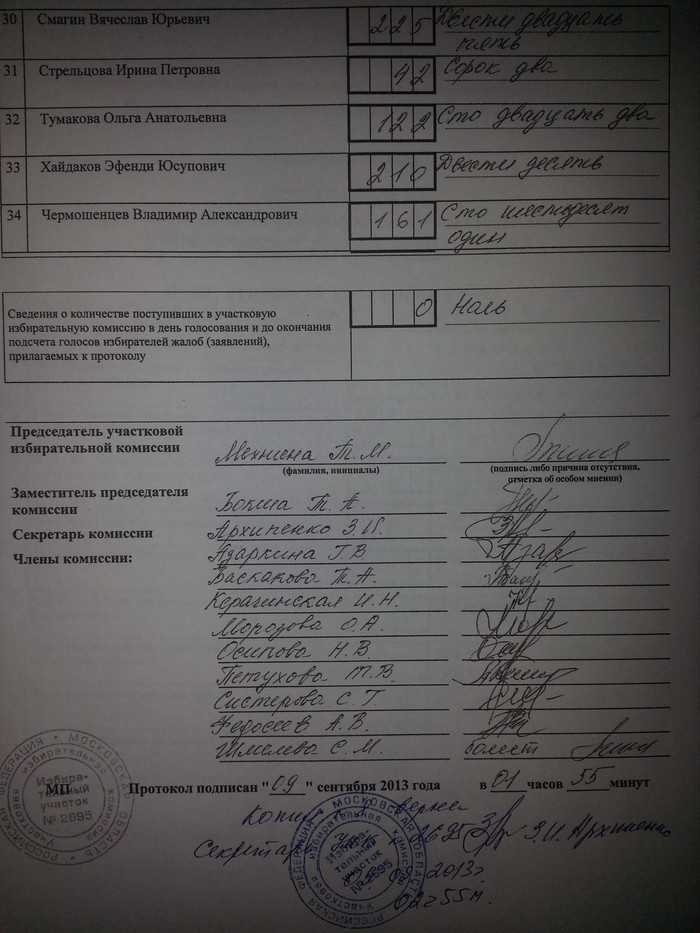 30 Смагин Вячеслав Юрьевич 225 Двести двадцать
пять
31 Стрельцова Ирина Петровна 42 Сорок два
32 Тумакова Ольга Анатольевна 122 Сто двадцать два
33 Хайдаков Эфенди Юсупович 210 Двести десять
34 Чермошенцев Владимир Александрович 161 Сто шестьдесят
один
Сведения о количестве поступивших в участковую
избирательную комиссию в день голосования и до окончания
подсчета голосов избирателей жалоб (заявлений),
прилагаемых к протоколу
0 Ноль
Председатель участковой
избирательной комиссии Т.М.
(фамилия, инициалы) (подпись либо причина отсутствия,
отметка об особом мнении)
Заместитель председателя
комиссии Т. А.
Секретарь комиссии Архипенко З.И.
Члены комиссии: Азаркина Г.В
Баскакова Т.А.
Керачинская И.Н.
Морозова О.А.
Осипова Н.В.
Петухова Т.В.
Систерова С.Г
Федосеев А.В.
Шмелева С.М. болеет
МП Протокол подписан "09" сентября 2013 года в 01 часов 55 минут
Копия верна
Секретарь 2695 З.И. Архипенко
2013г.
02ч 55м.
РОССИЙСКАЯ ФЕДЕРАЦИЯ • МОСКОВСКАЯ ОБЛАСТЬ
Участковая избирательная комиссия
Избира-
тельный
участок
№ 2695
РОССИЙСКАЯ ФЕДЕРАЦИЯ • МОСКОВСКАЯ ОБЛАСТЬ
Участковая избирательная комиссия
Избира-
тельный
участок
№ 2695